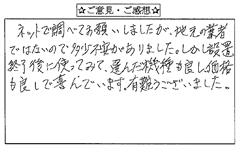 ☆ご意見・ご感想☆
ネットで調べてお願いしましたが、地元の業者
ではないので多少不安がありました。しかし設置
終了後に使ってみて、選んだ機種も良し、価格
も良しで喜んでいます。有難うございました。